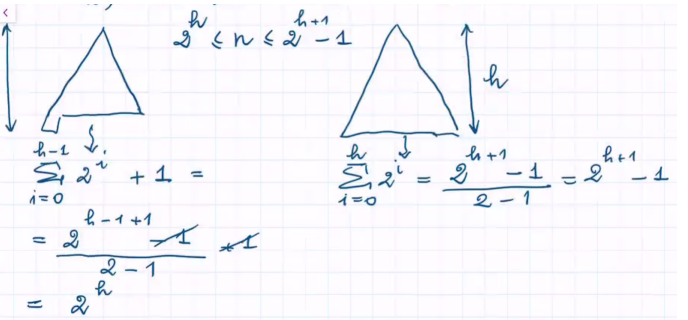 2^h ≤ n ≤ 2^{h+1} - 1
h
\sum_{i=0}^{h-1} 2^i + 1 =
= \frac{2^{h-1+1} - 1}{2-1} + 1
= 2^h
\sum_{i=0}^{h} 2^i = \frac{2^{h+1} - 1}{2-1} = 2^{h+1} - 1